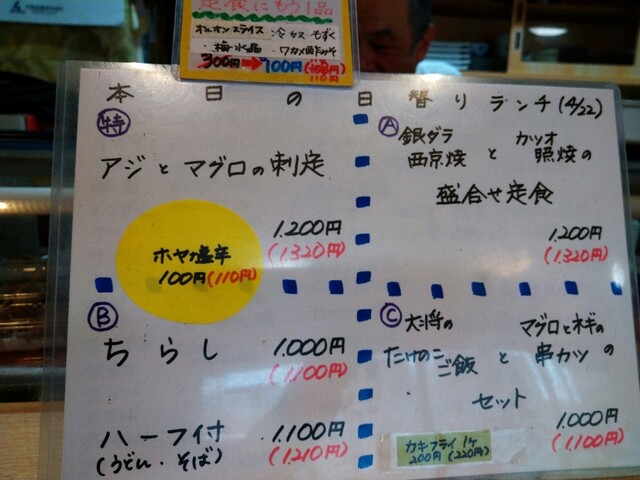 定食にもう1品
オニオンスライス 冷奴 もずく
・梅水晶 ・ワカメ酢みそ
300円→100円(110円)
本日の日替りランチ(4/22)
特
アジとマグロの刺定
1.200円
(1.320円)
ホヤ塩辛
100円(110円)
A
銀ダラ カツオ
西京焼と照焼の
盛合せ定食
1.200円
(1.320円)
B
ちらし 1.000円
(1.100円)
ハーフ付 1.100円
(うどん・そば) (1.210円)
C
大将の マグロとネギの
たけのこご飯と串カツの
セット
1.000円
(1.100円)
カキフライ 1ヶ
200円(220円)